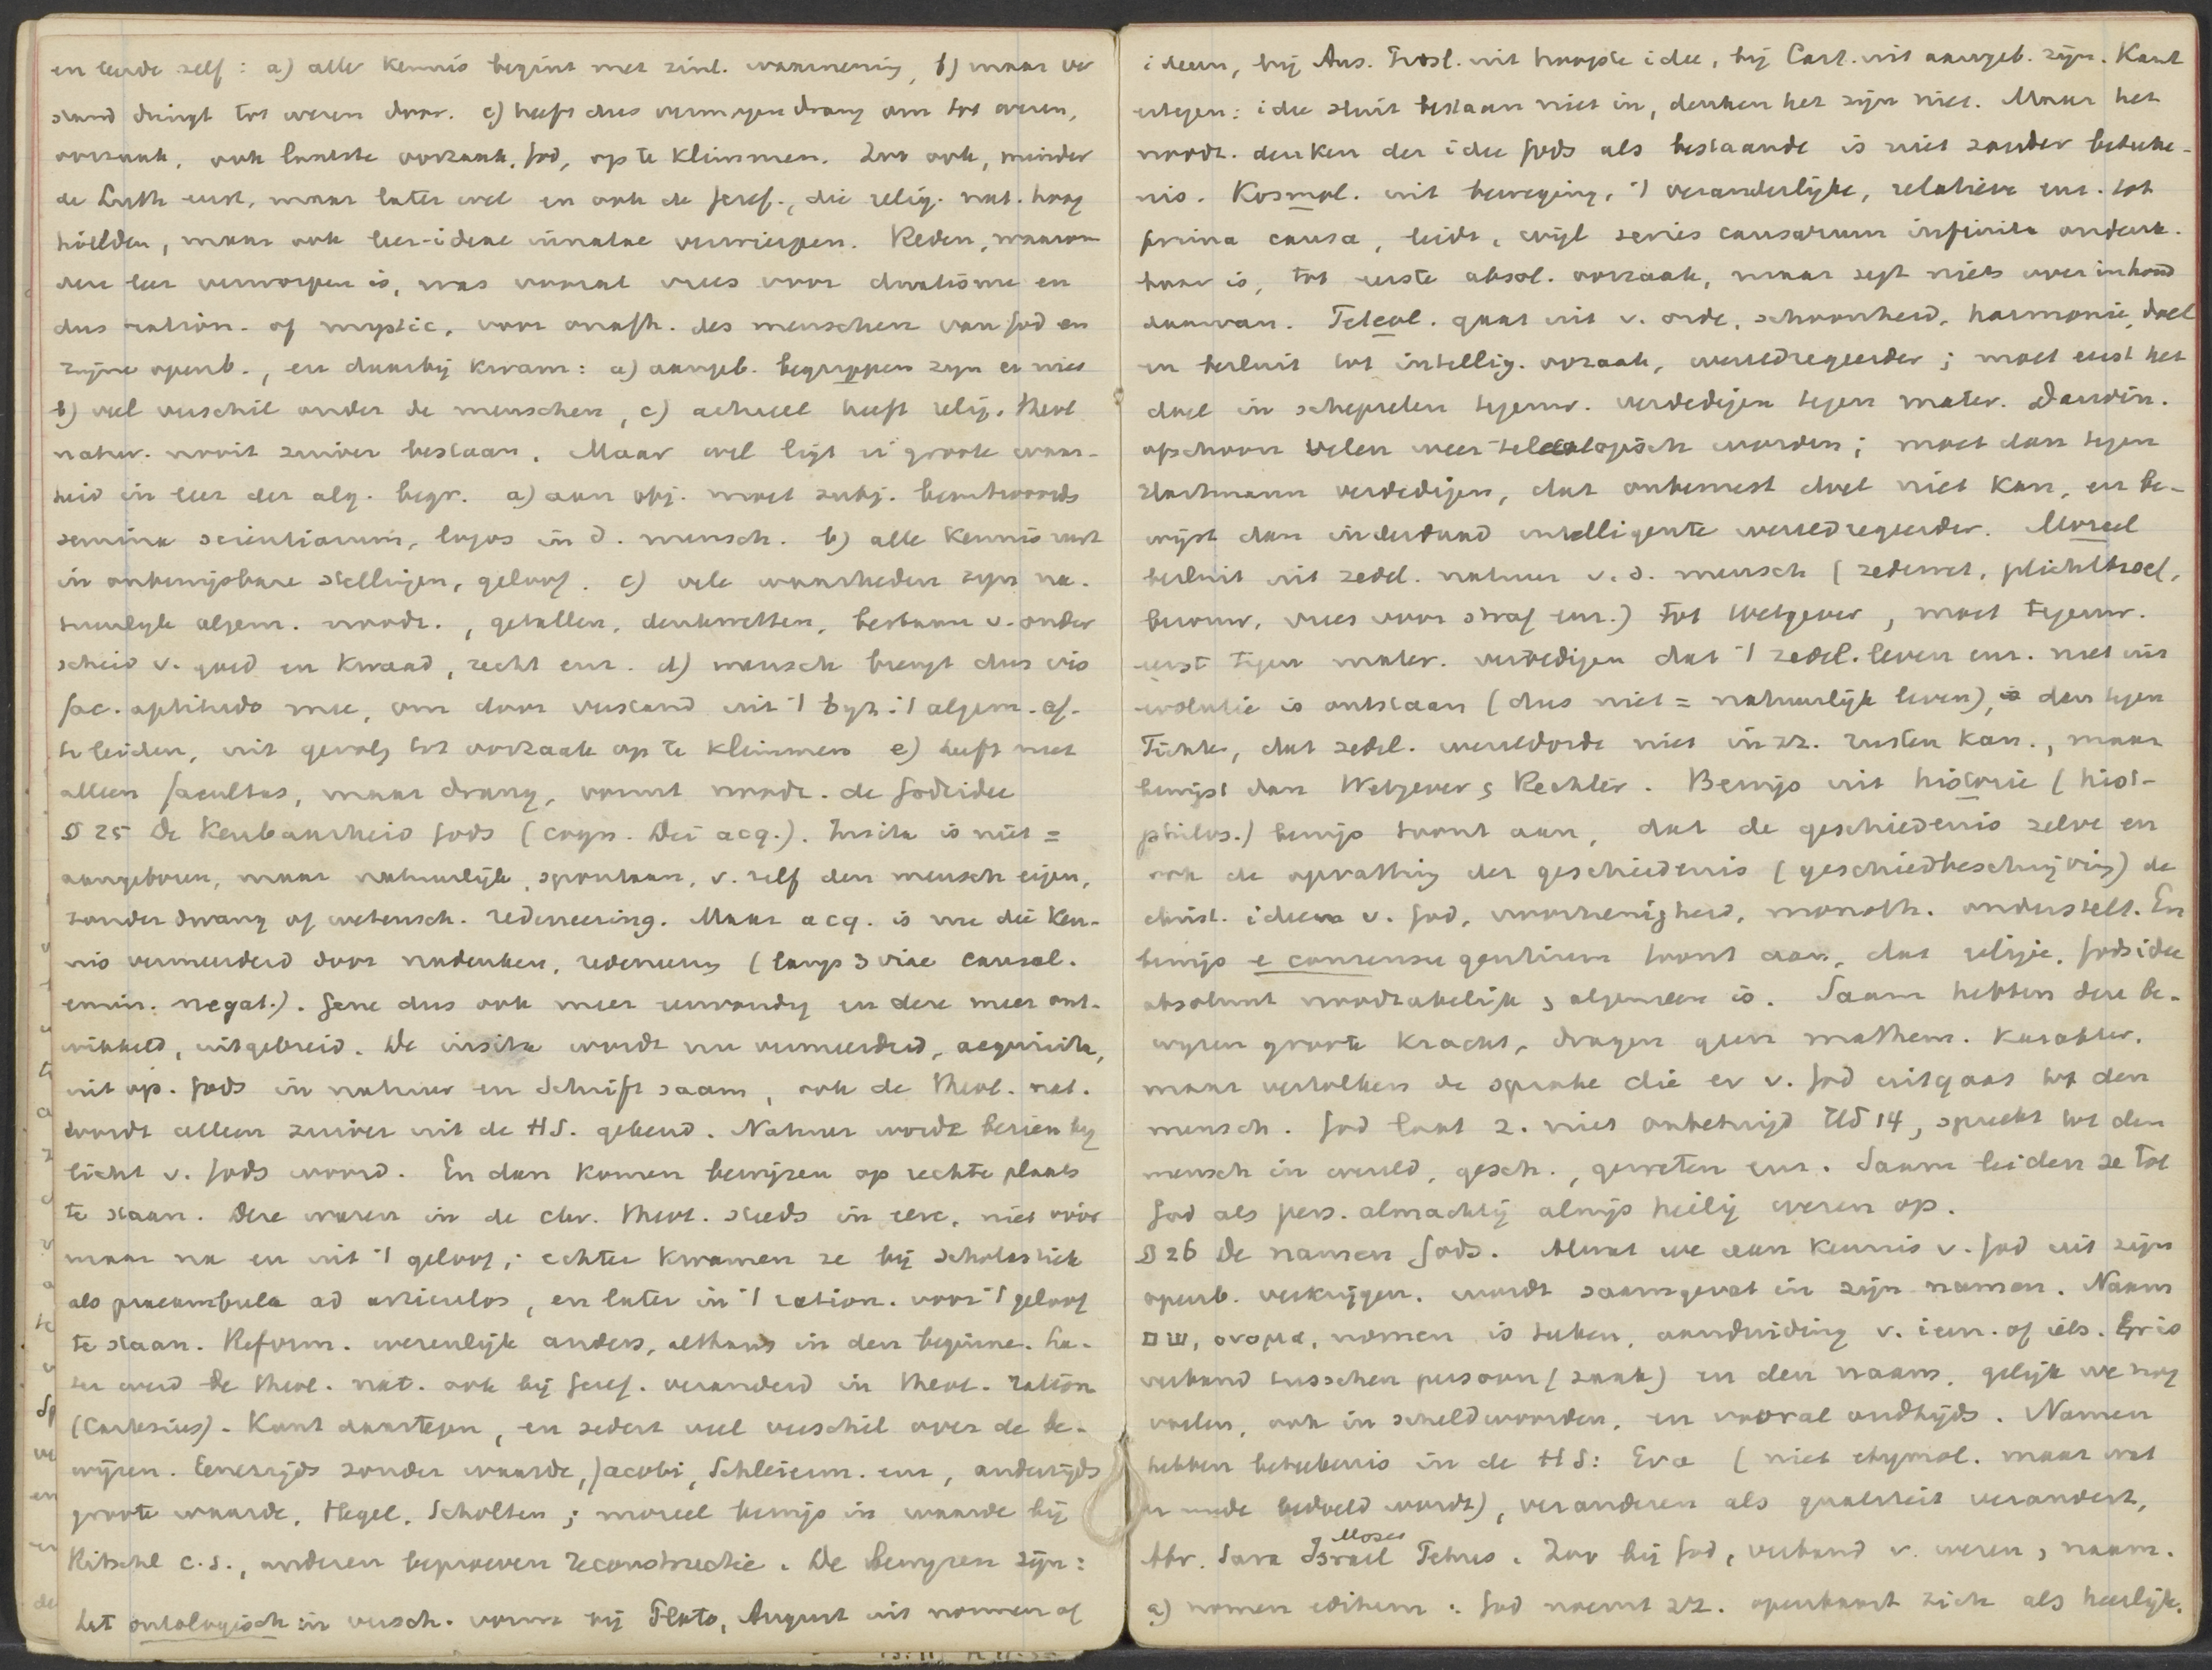 en leerde zelf: a) alle kennis begint met zinl. waarneming, b) maar ver
stand dringt tot wezen door. c) heeft dus vermogen drang om tot wezen,
oorzaak, ook laatste oorzaak, God, op te klimmen. Zoo ook, minder
de Luth eerst, maar later wel en ook de Geref., die relig. nat. hoog
hielden, maar ook leer-ideae innatae verwierpen. Reden, waarom
deze leer verworpen is, was vooral vrees voor dualisme en
dus ration. of mystic, voor onafh. des menschen van God en
zijne openb., en daarbij kwam: a) aangeb. begrippen zijn er niet
b) veel verschil onder de menschen, c) actueel heeft relig. theol
natur. nooit zuiver bestaan. Maar wel ligt er groote waar-
heid in leer der alg. begr. a) aan obj. moet subj. beantwoorden
semina scientiarum, logos in d. mensch. b) alle kennis rust
in onbewijsbare stellingen, geloof. c) vele waarheden zijn na-
tuurlijk algem. noodz., getallen, denkwetten, bestaan v. onder
scheid v. goed en kwaad, recht enz. d) mensch brengt dus vis
fac. aptitudo mee, om door verstand uit 't byz. 't algem. af
te leiden, uit gevolg tot oorzaak op te klimmen e) heeft niet
alleen facultas, maar drang, vormt noodz. de Godsidee
§ 25 De Kenbaarheid Gods (cogn. Dei acq.). Insita is niet =
aangeboren, maar natuurlijk, spontaan, v. zelf den mensch eigen,
zonder dwang of wetensch. redeneering. Maar acq. is nu die Ken-
nis vermeerderd door nadenken, redeneering (langs 3 viae causal.
emin. negat.). Gene dus ook meer eenvoudig en deze meer ont-
wikkeld, uitgebreid. De insita wordt nu vermeerderd, acquisita,
uit op. Gods in natuur en Schrift saam, ook de theol. nat.
wordt alleen zuiver uit de HS. gekend. Natuur wordt bezien bij
licht v. Gods woord. En dan komen bewijzen op rechte plaats
te staan. Deze waren in de chr. theol. steeds in eere, niet vóór
maar na en uit 't geloof; echter kwamen ze bij scholastiek
als praeambula ad articulos, en later in 't ration. voor 't geloof
te staan. Reform. wezenlijk anders, althans in den beginne. La-
ter werd de theol. nat. ook bij Geref. veranderd in theol. ration
(Cartesius). Kant daartegen, en sedert veel verschil over de be-
wijzen. Eenerzijds zonder waarde, Jacobi, Schleierm. enz, anderzijds
groote waarde, Hegel, Scholten; moreel bewijs in waarde bij
Ritschl c.s., anderen beproeven reconstructie. De bewijzen zijn:
het ontologisch in versch. vorm bij Plato, August uit normen of
ideeën, bij Ans. Prosl. uit hoogste idee, bij Cart. uit aangeb. zijn. Kant
ertegen: idee sluit bestaan niet in, denken het zijn niet. Maar het
noodz. denken der idee Gods als bestaande is niet zonder beteeke-
nis. Kosmol. uit beweging, 't veranderlijke, relatieve enz. tot
prima causa, leidt, wijl series causarum infinita ondenk-
baar is, tot eerste absol. oorzaak, maar zegt niets over inhoud
daarvan. Teleol. gaat uit v. orde, schoonheid, harmonie, doel
en besluit tot intellig. oorzaak, wereldregeerder; moet eerst het
doel in schepselen tegenw. verdedigen tegen mater. Darwin.
ofschoon velen weer teleologisch worden; moet dan tegen
Hartmann verdedigen, dat onbewust doel niet kan, en be-
wijst dan inderdaad intelligente wereldregeerder. Moreel
besluit uit zedel. natuur v. d. mensch (zedewet, plichtbesef,
berouw, vrees voor straf enz.) tot Wetgever, moet tegenw.
eerst tegen mater. verdedigen dat 't zedel. leven enz. niet uit
evolutie is ontstaan (dus niet = natuurlijk leven), dan tegen
Fichte, dat zedel. wereldorde niet in zz. rusten kan., maar
bewijst dan Wetgever & Rechter. Bewijs uit historie (hist-
philos.) bewijs toont aan, dat de geschiedenis zelve en
ook de opvatting der geschiedenis (geschiedbeschrijving) de
christ. ideeën v. God, voorzienigheid, monoth. onderstelt. En
bewijs e consensu gentium toont aan, dat religie, Godsidee
absoluut noodzakelijk & algemeen is. Saam hebben deze be-
wijzen groote kracht, dragen geen mathem. karakter,
maar vertolken de sprake die er v. God uitgaat tot den
mensch. God laat z. niet onbetuigd Hd 14, spreekt tot den
mensch in wereld, gesch., geweten enz. Saam leiden ze tot
God als pers. almachtig alwijs heilig wezen op.
§ 26 De namen Gods. Alwat we aan kennis v. God uit zijn
openb. verkrijgen, wordt saamgevat in zijn namen. Naam
שם, ονομα, nomen is teken, aanduiding v. iem. of iets. Er is
verband tusschen persoon (zaak) en den naam, gelijk we nog
voelen, ook in scheldwoorden, en vooral oudtijds. Namen
hebben beteekenis in de HS: Eva (niet etymol. maar wat
er mede bedoeld wordt), veranderen als qualiteit verandert,
Abr. Sara Israel Moses Petrus. Zoo bij God, verband v. wezen & naam.
a) nomen editum: God noemt zz. openbaart zich als heerlijk,